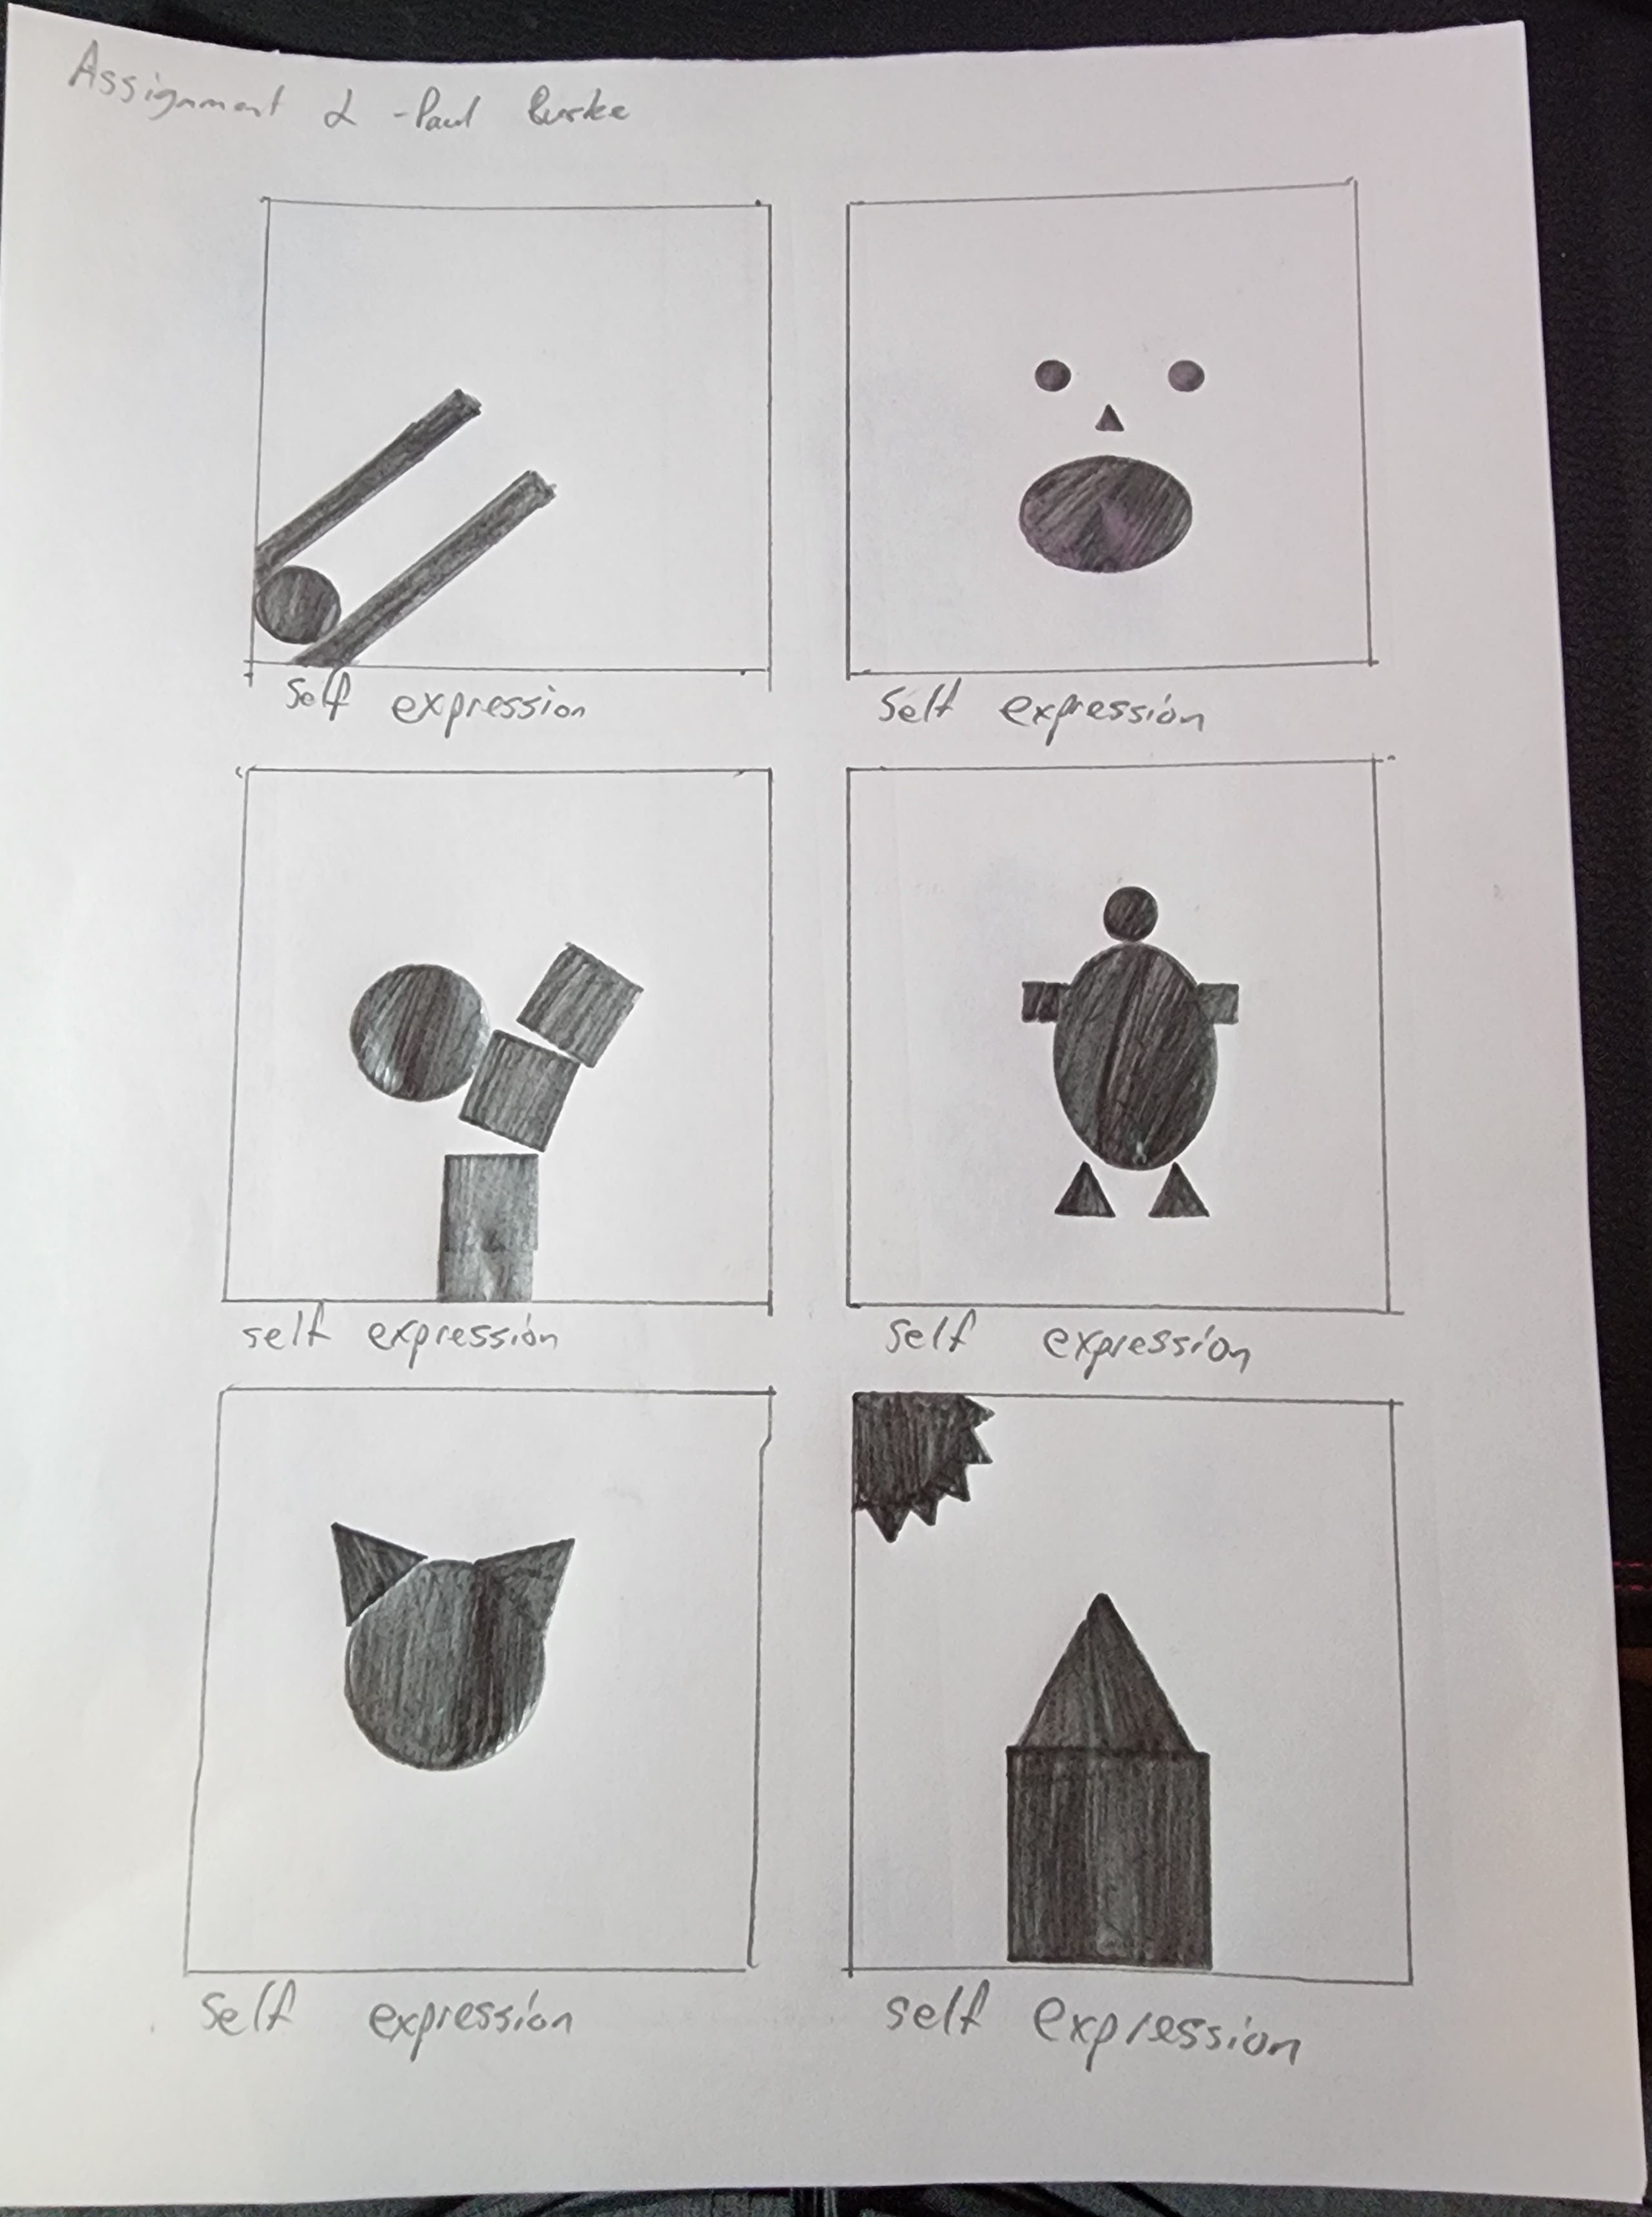 Assignment 2 - Paul Burke
Self expression
Self expression
self expression
self expression
Self expression
self expression